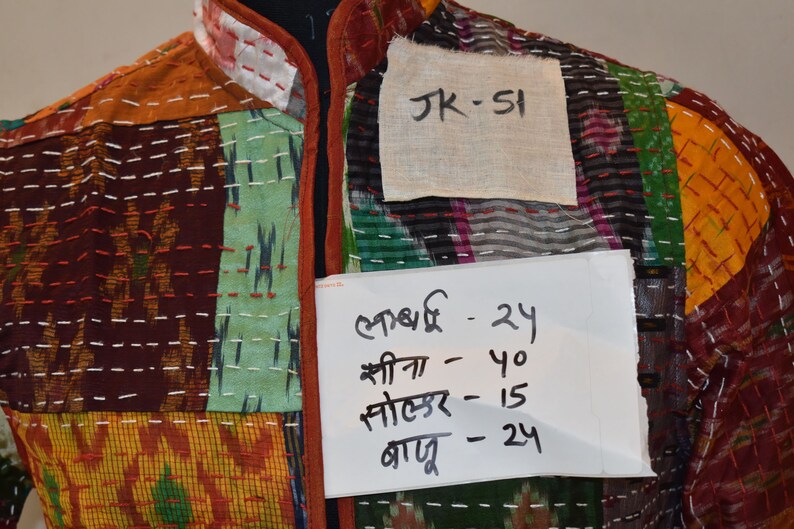 JK - 51
लम्बाई - 24
सीना - 40
सोल्डर - 15
बाजू - 24